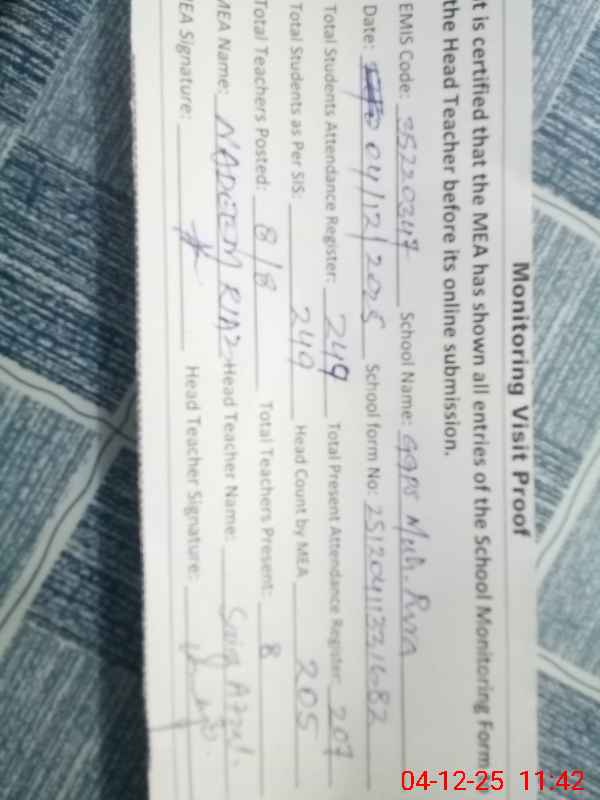 Monitoring Visit Proof
It is certified that the MEA has shown all entries of the School Monitoring Form to
the Head Teacher before its online submission.
EMIS Code: 35220347 School Name:
Date: 04/12/2025 School form No:
Total Students Attendance Register: 249 Total Present Attendance Register: 207
Total Students as Per SIS: 249 Head Count by MEA 205
Total Teachers Posted: 8/8 Total Teachers Present: 8
MEA Name: NADEEM RIAZ Head Teacher Name:
MEA Signature: Head Teacher Signature:
04-12-25 11:42